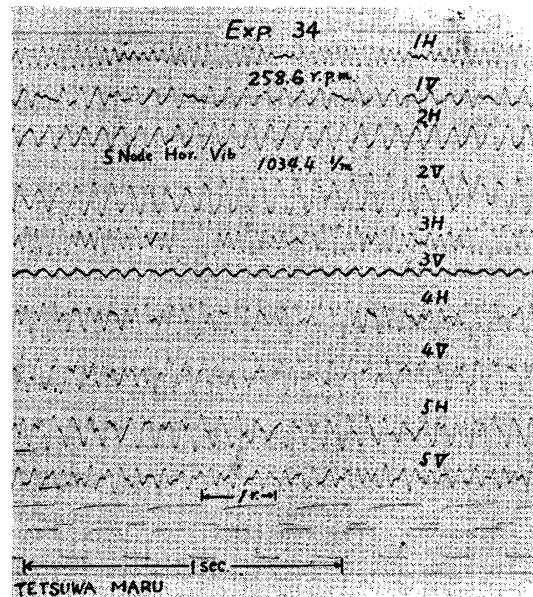 Exp. 34
1H
258.6 r.p.m.
1V
2H
5 Node Hor. Vib 1034.4 1/m
2V
3H
3V
4H
4V
5H
5V
1r.
1 sec.
TETSUWA MARU